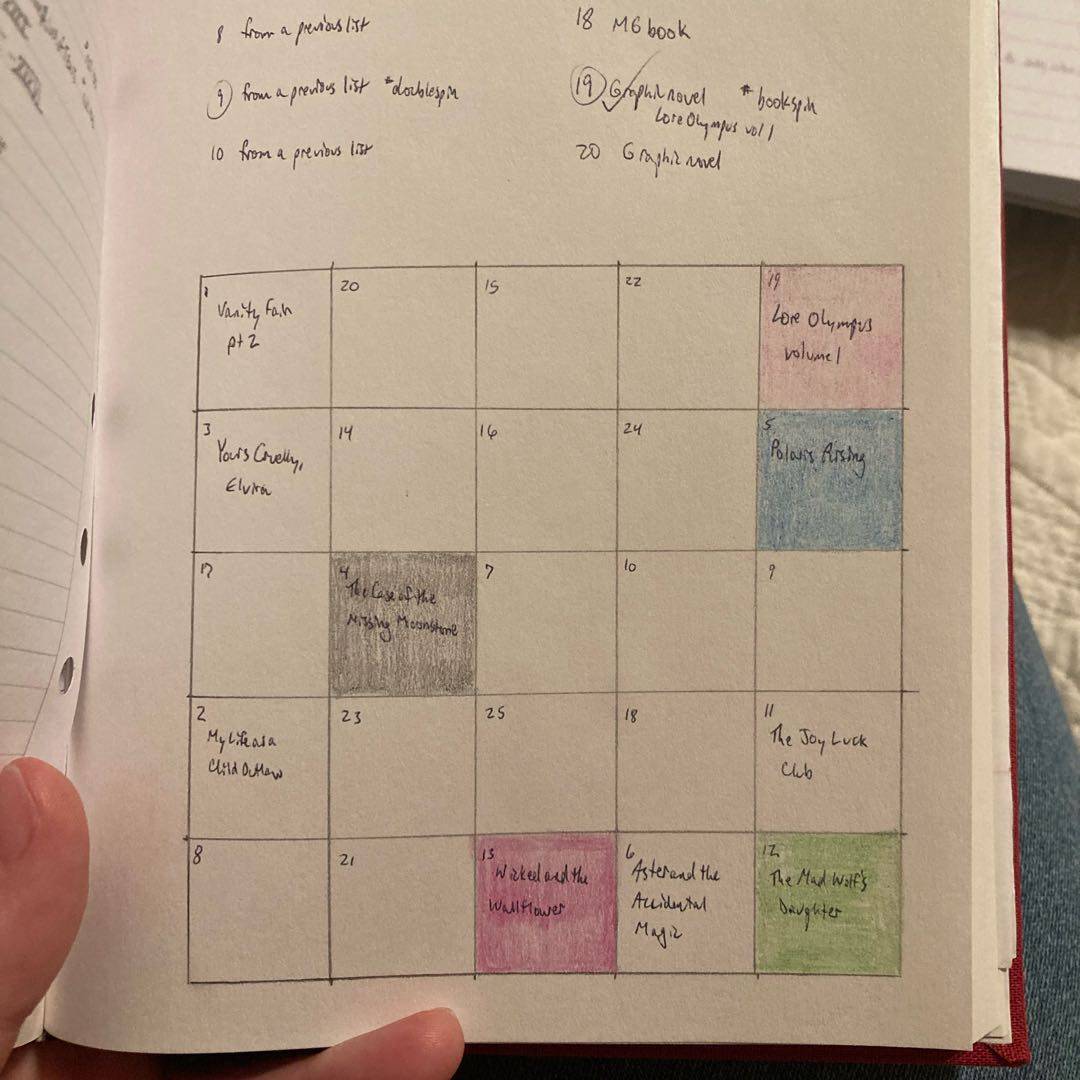 8 from a previous list
9 from a previous list *doublespin
10 from a previous list
18 MG book
19 Graphic novel #bookspin
Lore Olympus vol 1
20 Graphic novel
1
Vanity Fair
pt 2
20
15
22
19
Lore Olympus
volume 1
3
Yours Cruelly,
Elvira
14
16
24
5
Polaris Rising
17
4
The Case of the
Missing Moonstone
7
10
9
2
My Life as a
Child Outlaw
23
25
18
11
The Joy Luck
Club
8
21
13
Wicked and the
Wallflower
6
Aster and the
Accidental
Magic
12
The Mad Wolf's
Daughter